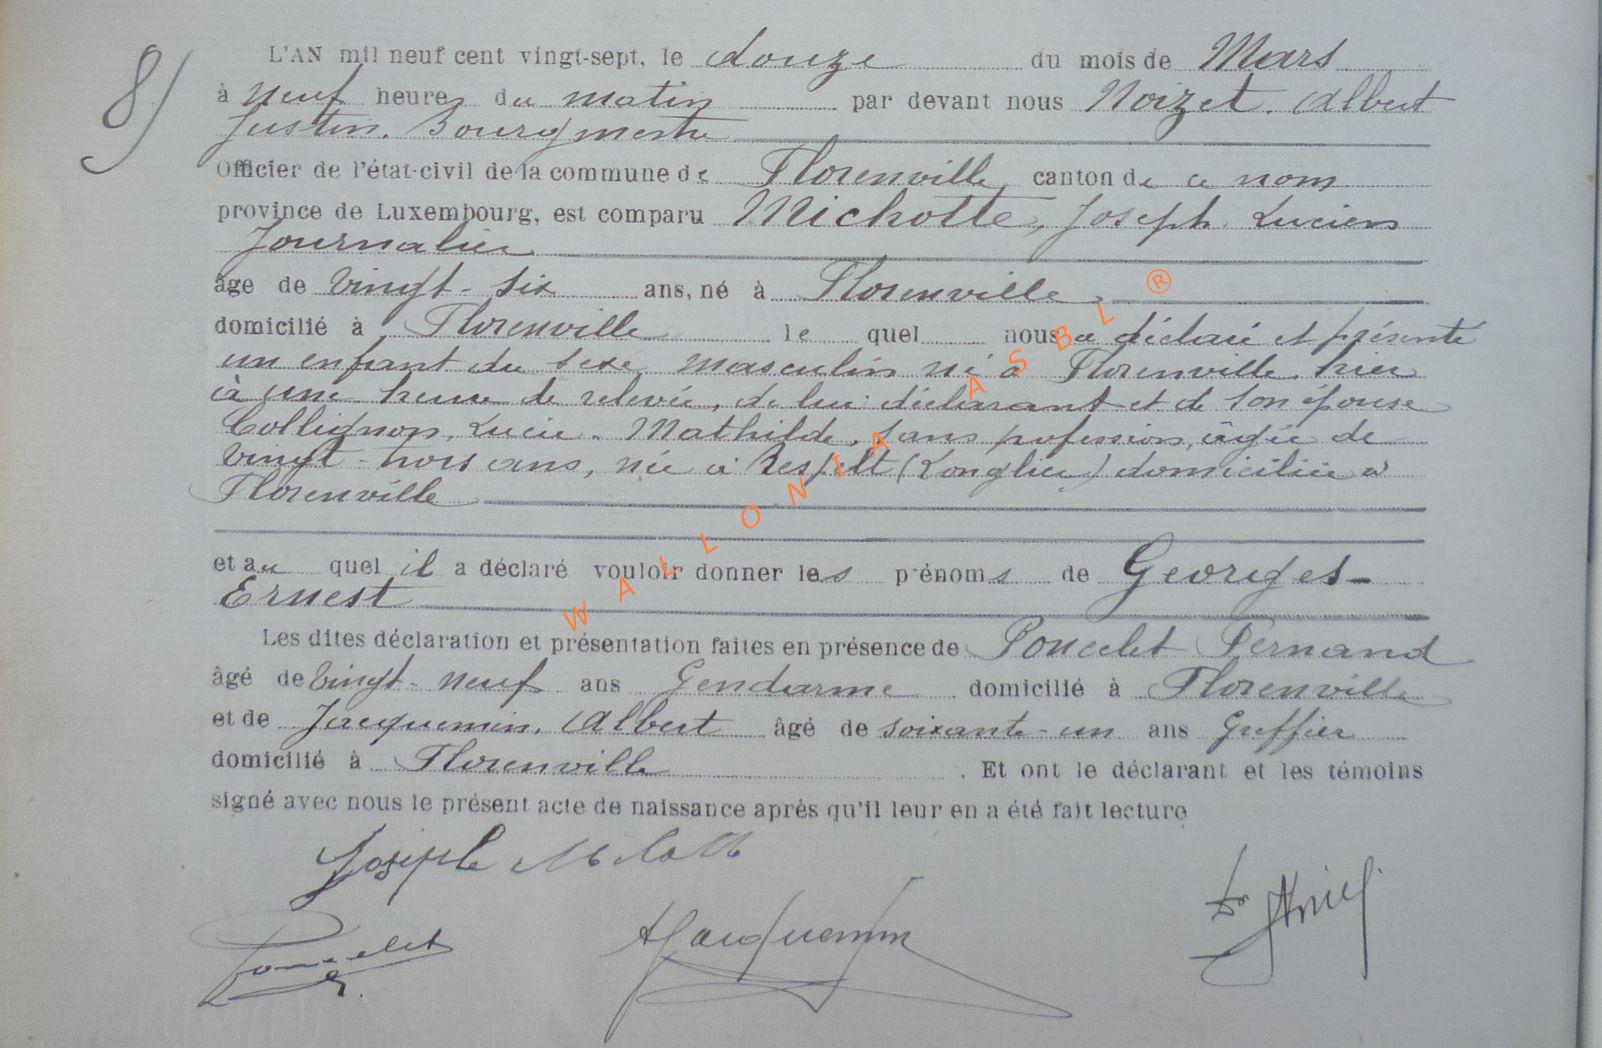 8)
L'AN mil neuf cent vingt-sept, le douze du mois de Mars
à neuf heures du matin par devant nous Noizet. Albert
Justin. Bourgmestre
Officier de l'état-civil de la commune de Florenville, canton de ce nom
province de Luxembourg, est comparu Michotte, Joseph. Lucien
Journalier
âge de vingt-six ans, né à Florenville,
domicilié à Florenville le quel nous a déclaré et présenté
un enfant du sexe masculin né à Florenville, hier
à une heure de relevée, de lui déclarant et de son épouse
Collignon, Lucie. Mathilde, sans profession, âgée de
vingt-trois ans, née à Respelt (Longlier) domiciliée à
Florenville
et au quel il a déclaré vouloir donner les prénoms de Georges-
Ernest
Les dites déclaration et présentation faites en présence de Poncelet Fernand
âgé de vingt-neuf ans Gendarme domicilié à Florenville
et de Jacquemin, Albert âgé de soixante-un ans Greffier
domicilié à Florenville. Et ont le déclarant et les témoins
signé avec nous le présent acte de naissance après qu'il leur en a été fait lecture
Joseph
Poncelet
AJacquemin
WALLONIA ASBL ®